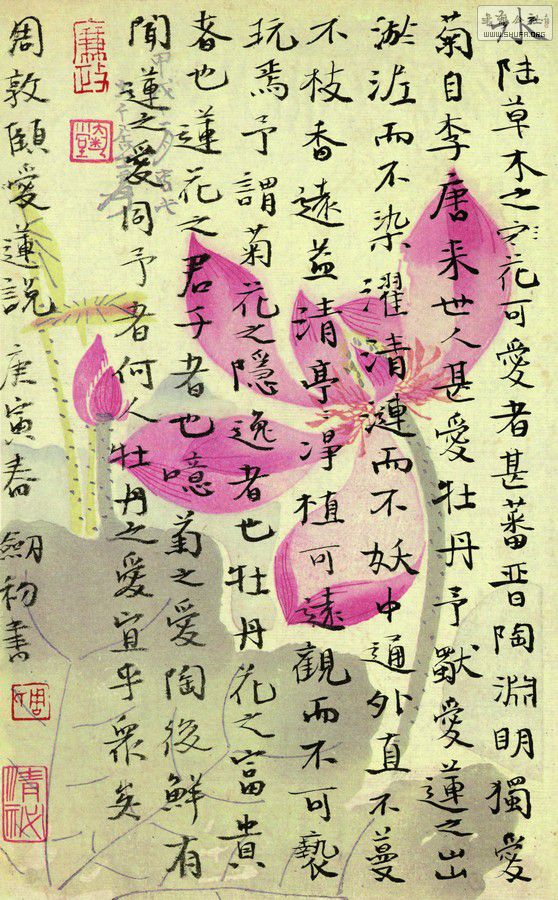 水陸草木之花可愛者甚蕃晋陶淵明獨愛
菊自李唐来世人甚愛牡丹予獨愛蓮之出
淤泥而不染濯清漣而不妖中通外直不蔓
不枝香遠益清亭〻淨植可遠觀而不可褻
玩焉予謂菊花之隱逸者也牡丹花之富貴
者也蓮花之君子者也噫菊之愛陶後鮮有
聞蓮之愛同予者何人牡丹之愛宜乎衆矣
周敦頤愛蓮説 庚寅春 劒初書
廉政
清祕